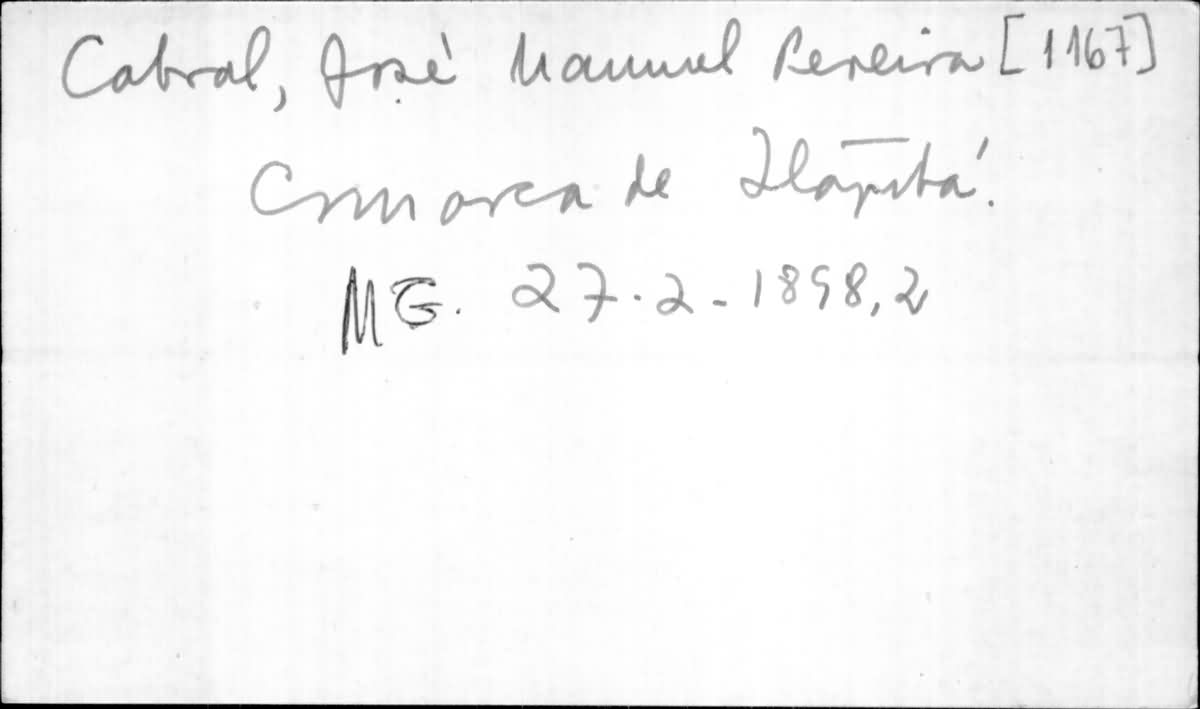 Cabral, José Manuel Pereira [1167]
Comarca de
MG. 27.2-1898,2